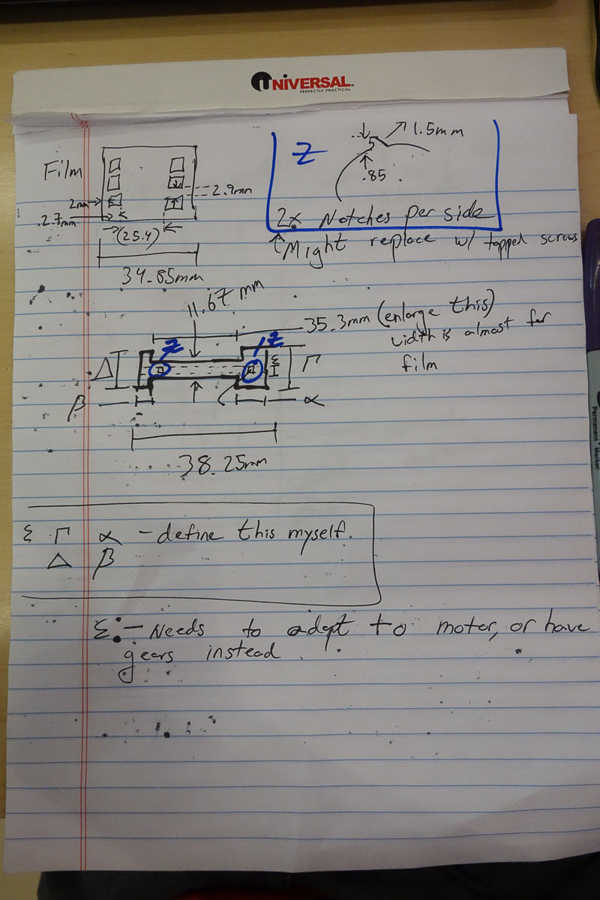 UNIVERSAL
PERFECTLY PRACTICAL
Film
2mm
2.9mm
.27mm
(25.4)
34.85mm
Z
1.5mm
.85
2x Notches per side
Might replace w/ tapped screws
11.67 mm
35.3mm (enlarge this)
width is almost for
film
Z
Z
Δ
ξ
Γ
β
α
38.25mm
ξ Γ α - define this myself.
Δ β
ξ: - Needs to adapt to motor, or have
gears instead
Permanent Marker